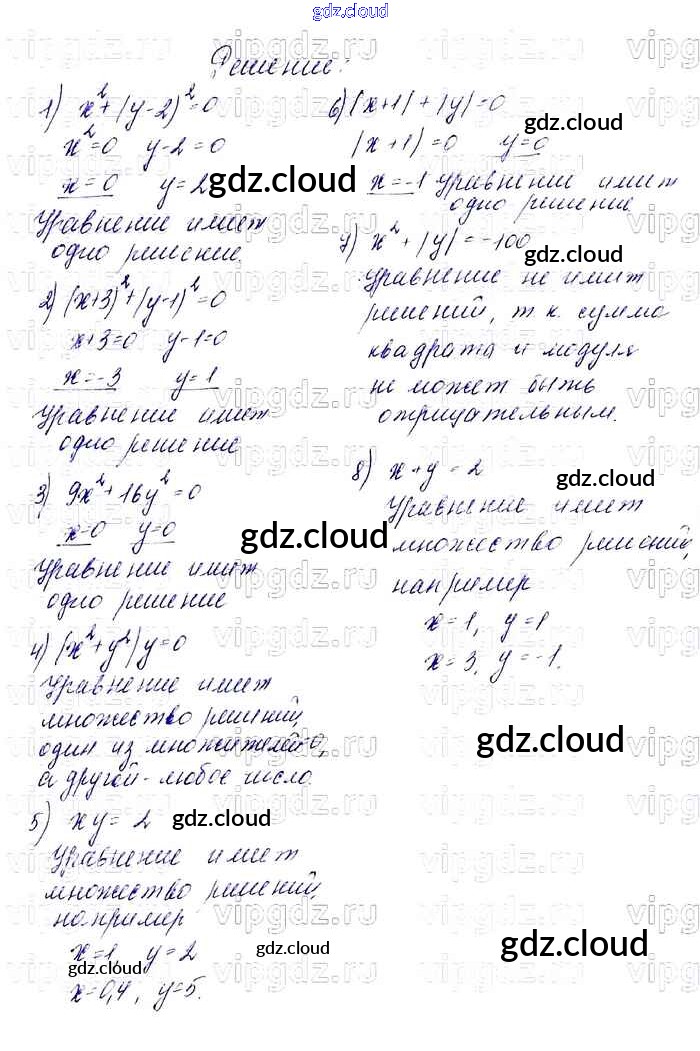 gdz.cloud
Решение:
1) x²+(y-2)²=0
x²=0 y-2=0
x=0 y=2
Уравнение имеет
одно решение.
2) (x+3)²+(y-1)²=0
x+3=0 y-1=0
x=-3 y=1
Уравнение имеет
одно решение
3) 9x²+16y²=0
x=0 y=0
Уравнение имеет
одно решение
4) (x²+y²)y=0
Уравнение имеет
множество решений,
один из множителей 0,
а другой - любое число.
5) xy=2
Уравнение имеет
множество решений,
например
x=1, y=2
x=0,4, y=5.
6) |x+1|+|y|=0
|x+1|=0 y=0
x=-1 Уравнение имеет
одно решение
7) x²+|y|=-100
Уравнение не имеет
решений, т к сумма
квадрата и модуля
не может быть
отрицательным.
8) x+y=2
Уравнение имеет
множество решений,
например
x=1, y=1
x=3, y=-1.
gdz.cloud
gdz.cloud
gdz.cloud
gdz.cloud
gdz.cloud
gdz.cloud
gdz.cloud
gdz.cloud
gdz.cloud
gdz.cloud
vipgdz.ru